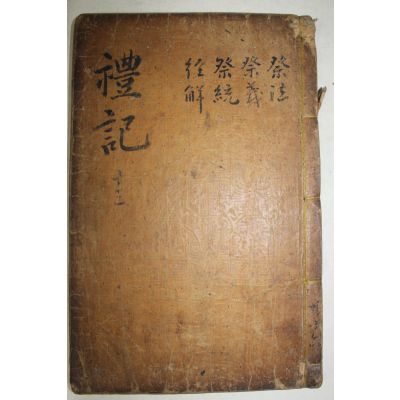 祭法
祭義
祭統
經解
禮記
十一